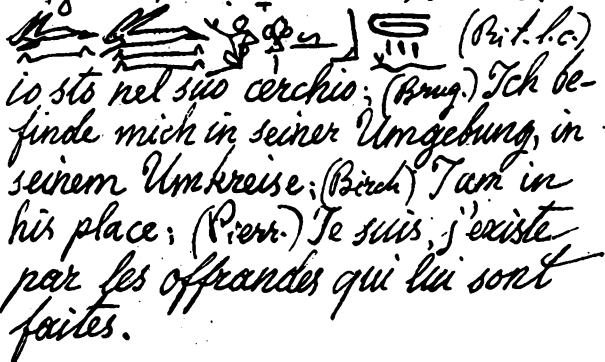 (Rit. l. c.)
io sto nel suo cerchio; (Brug.) Ich be-
finde mich in seiner Umgebung, in
seinem Umkreise; (Birch) I am in
his place; (Pierr.) Je suis, j'existe
par les offrandes qui lui sont
faites.